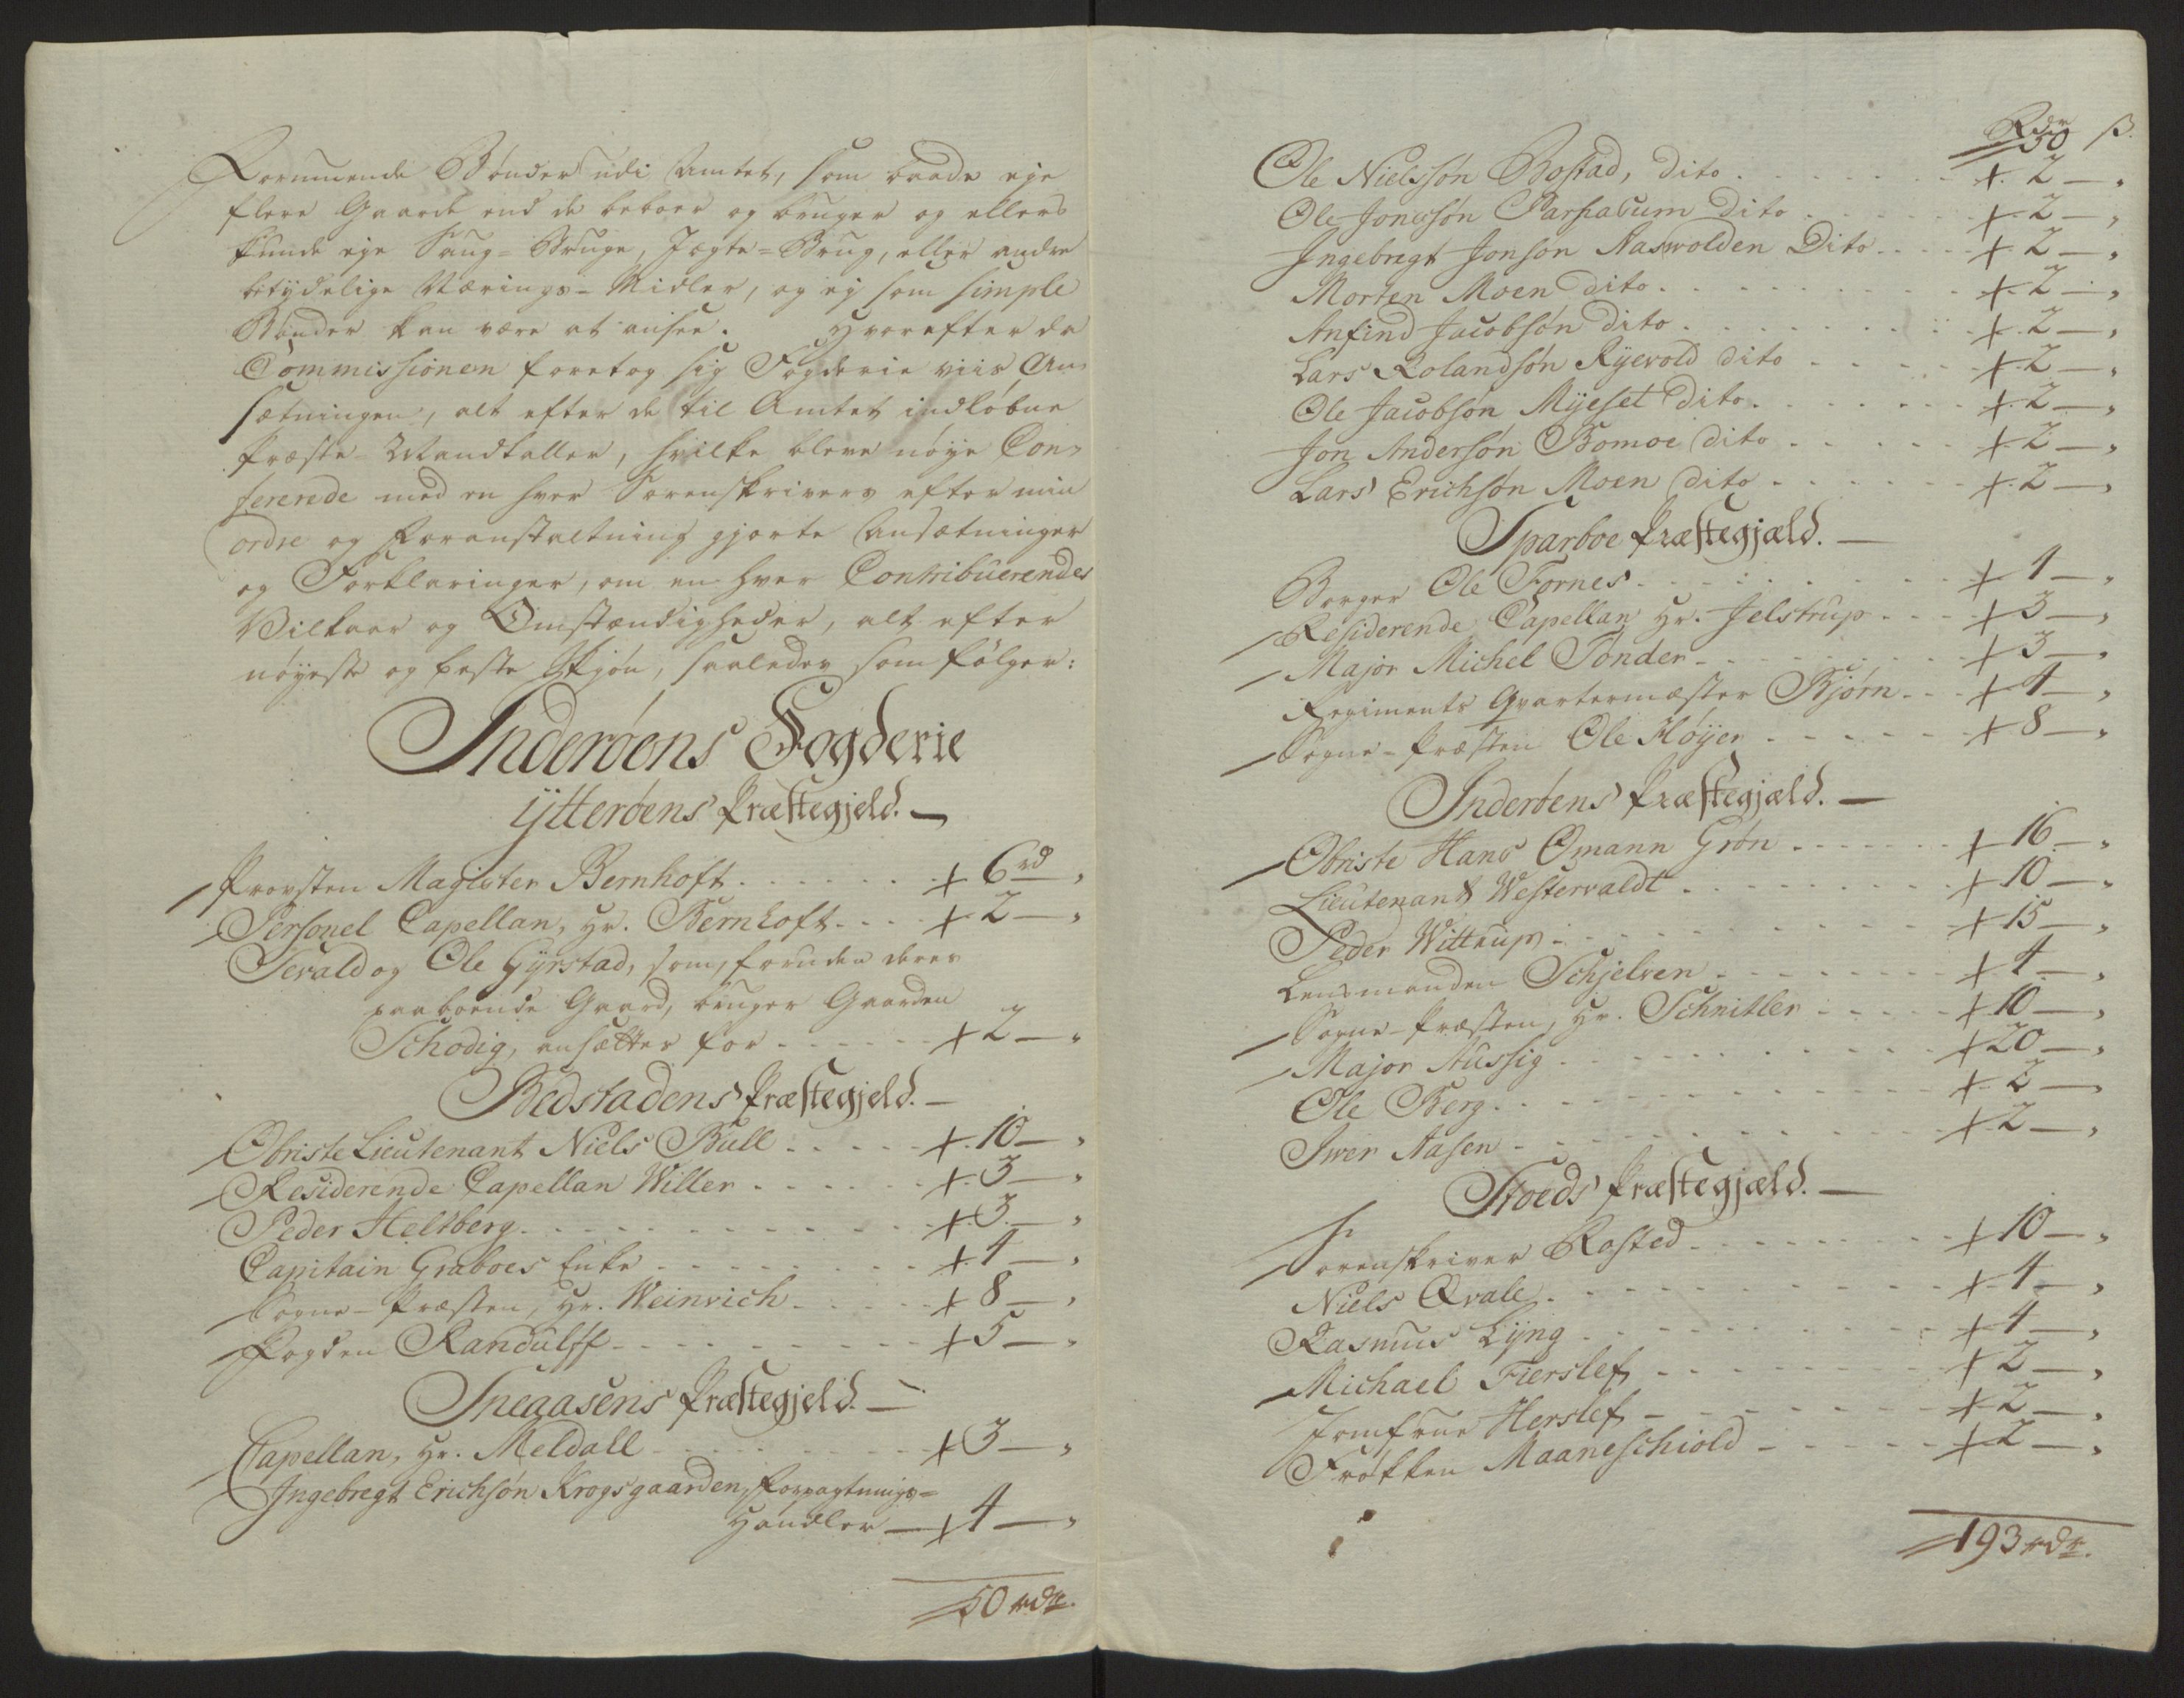 Formuende Bønder udi Amtet, som baade eje
flere Gaarde end de beboer og bruger og ellers
kunde eje Saug-Bruge, Jægte-Brug, eller andre
betydelige Nærings-Midler, og ej som simple
Bønder kan være at ansee. Hvorefter da
Commissionen foretog sig Fogderie viis An-
sætningen, alt efter de til Amtet indløbne
Præste Mandtaller, hvilke bleve nøye Con-
fererede med en hver Sorenskrivers efter min
ordre og Foranstaltning gjorte Ansætninger
og Forklaringer, om en hver Contribuerendes
Vilkaar og Omstændigheder, alt efter
nøyeste og beste Skjøn, saaledes som følger:
Inderøens Fogderie
Ytterøens Præstegjeld. —
Provsten Magister Bernhoft + 6 rd "
Personel Capellan, Hr. Bernhoft + 2 — "
Sevald og Ole Gyrstad, som, foruden deres
paaboende Gaard, bruger Gaarden
Schodig, ansættes for + 2 — "
Bedstadens Præstegjeld. —
Obriste Lieutenant Niels Bull + 10 — "
Residerende Capellan Willer + 3 — "
Peder Heltberg + 3 — "
Capitain Graboes Enke + 4 — "
Sogne-Præsten, Hr. Weinvich + 8 — "
Fogden Randulff + 5 — "
Sneaasens Præstegjeld. —
Capellan, Hr. Meldall + 3 — "
Ingebregt Erichsøn Krogsgaarden, Forpagtnings-
Handler — + 4 — "
50 rdr.
Rdr ß.
50
Ole Nielssøn Bostad, dito + 2 — "
Ole Jonessøn Parhaeum Dito + 2 — "
Ingebregt Jonson Aaswolden Dito + 2 — "
Morten Moen dito + 2 — "
Anfind Jacobsøn dito + 2 — "
Lars Rolandsøn Ryevold dito + 2 — "
Ole Jacobsøn Myeset dito + 2 — "
Jon Andersøn Bomoe dito + 2 — "
Lars Erichsøn Moen dito + 2 — "
Sparboe Præstegjæld. —
Borger Ole Fornes + 1 — "
Residerende Capellan Hr. Jelstrup + 3 — "
Major Michel Tønder + 3 — "
Regiments Qvartermæster Bjørn + 4 — "
Sogne-Præsten Ole Høyer + 8 — "
Inderøens Præstegjæld. —
Obriste Hans Omann Grøn + 16 — "
Lieutenant Westervaldt + 10 — "
Peder Wittrup + 15 — "
Lensmanden Schjelven + 4 — "
Sogne-Præsten, Hr. Schnitler + 10 — "
Major Hussig + 20 — "
Ole Berg + 2 — "
Iwer Aasen + 2 — "
Stoeds Præstegjæld. —
Sorenskriver Rosted + 10 — "
Niels Qvale + 4 — "
Rasmus Lyng + 4 — "
Michael Fierslef + 2 — "
Jomfrue Herslef + 2 — "
Frøkken Maaneschiold + 2 — "
193 rdr.